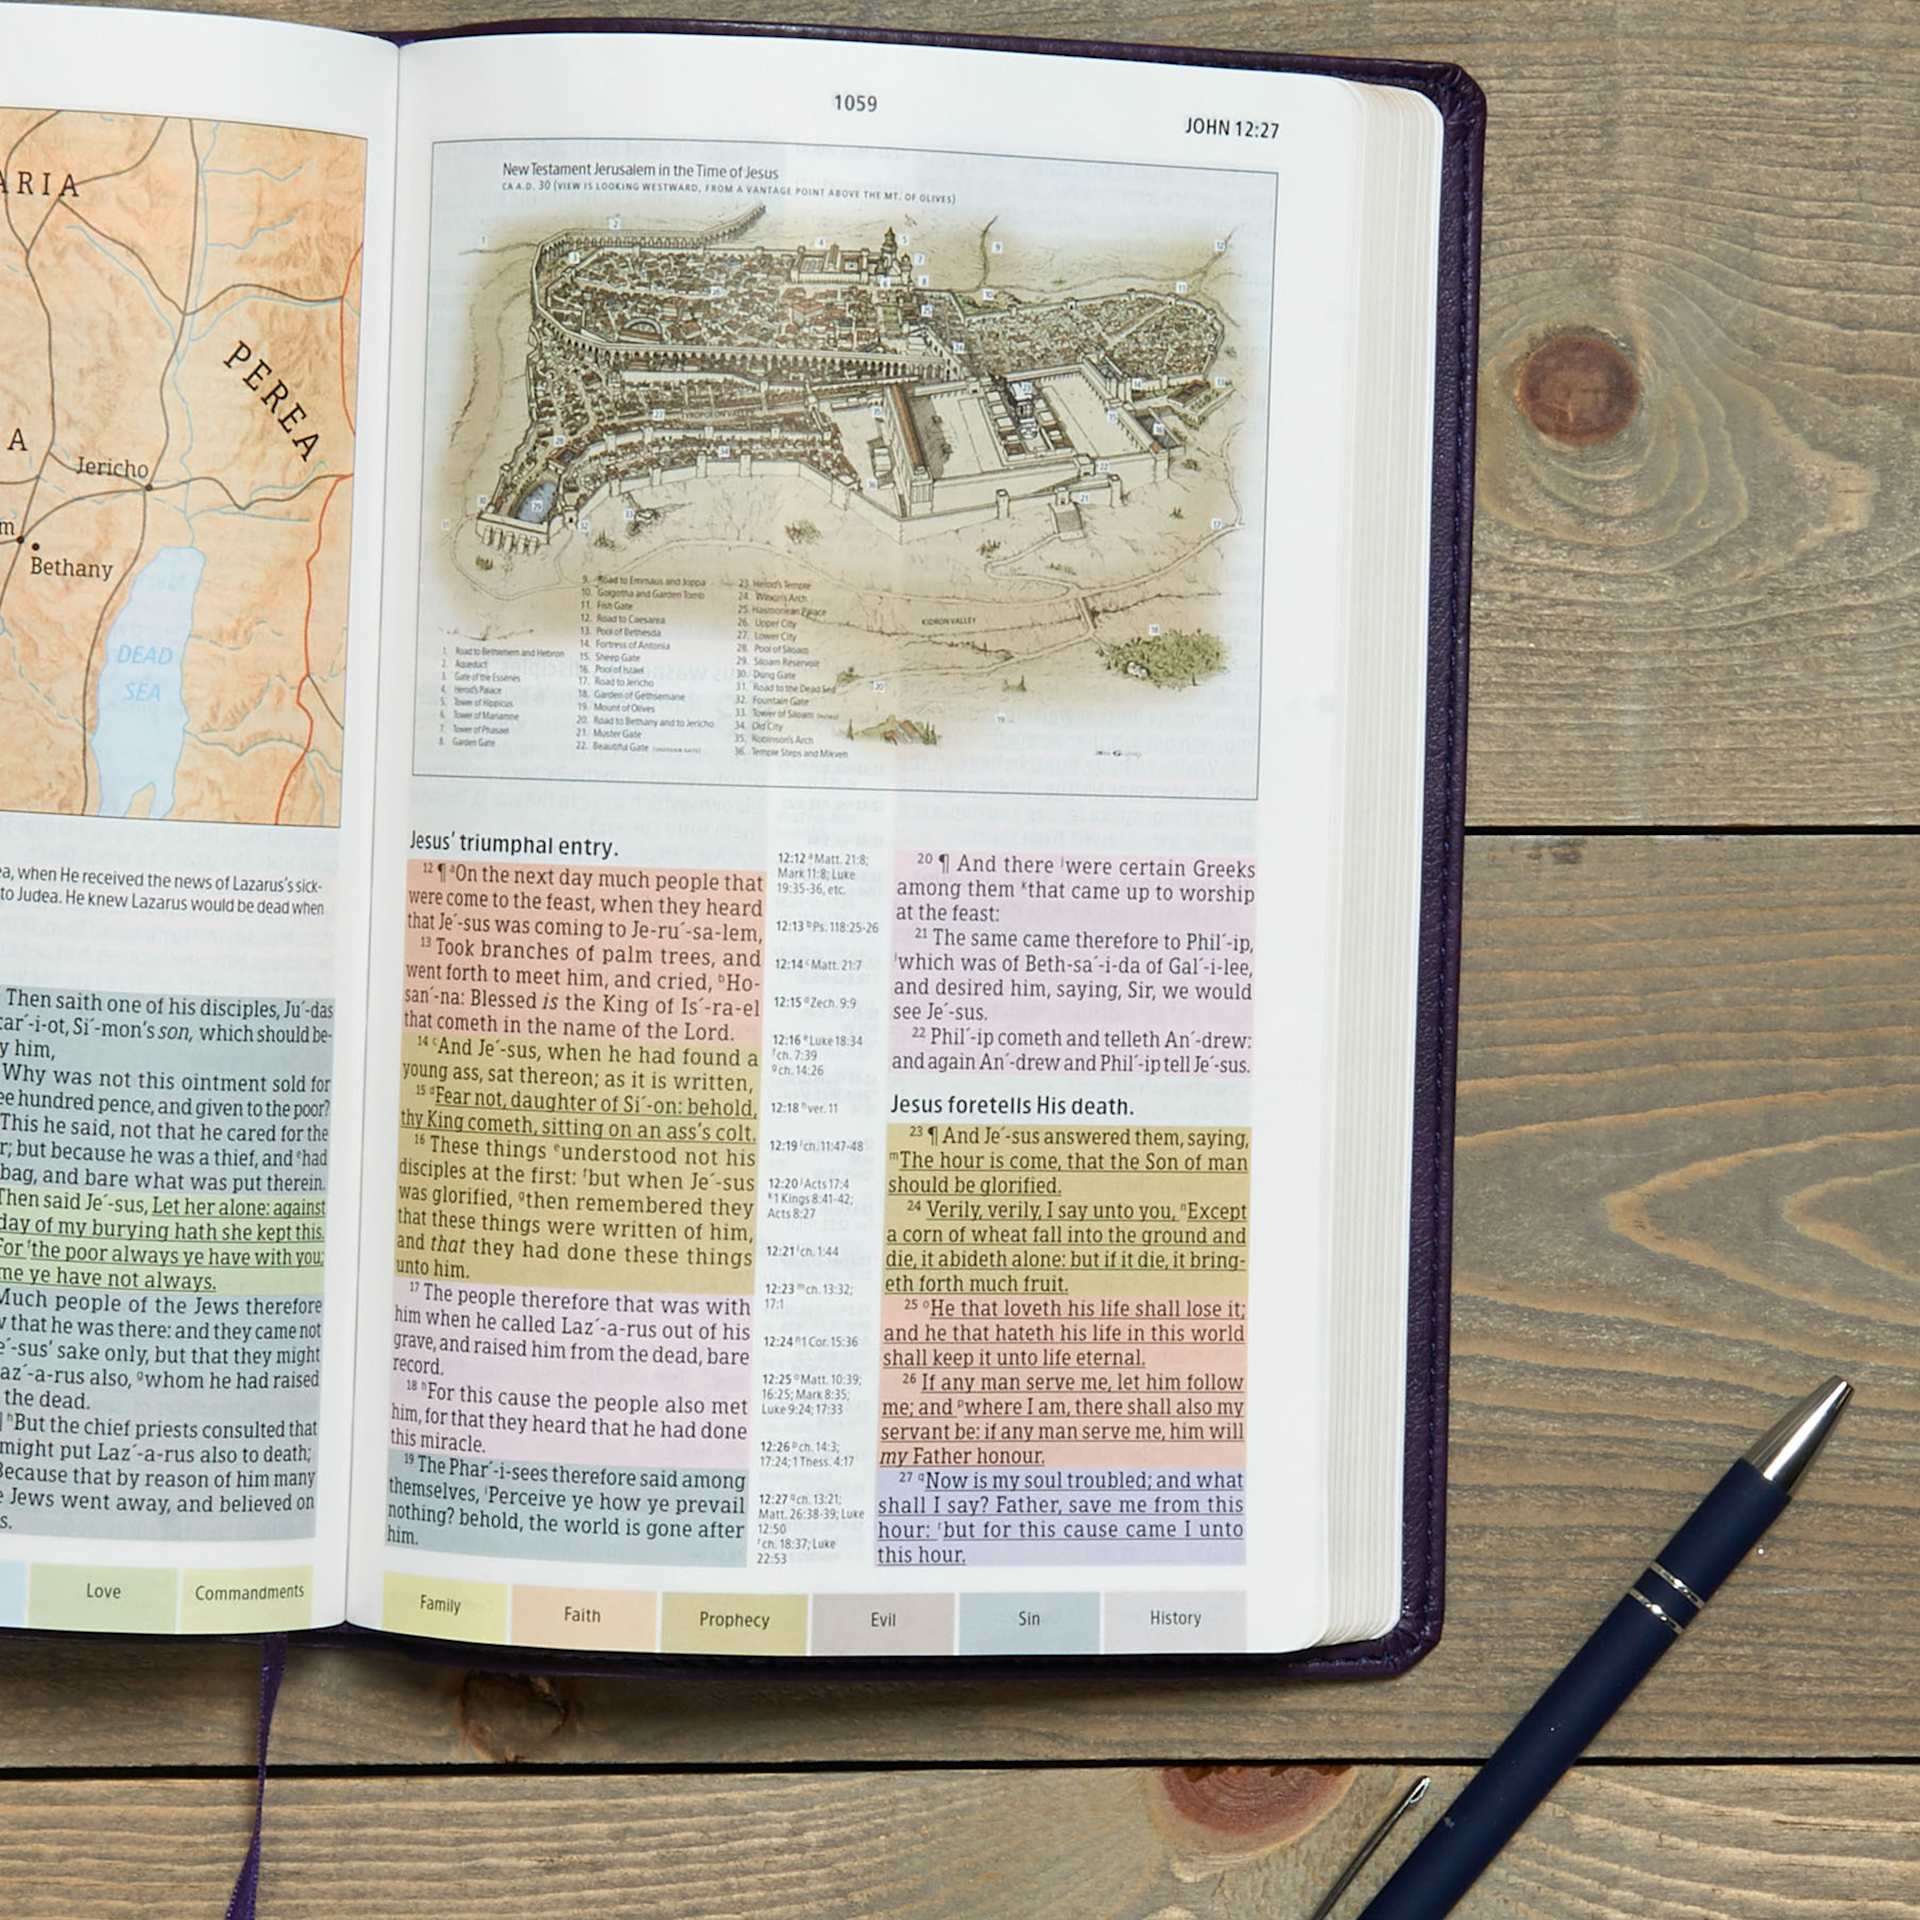 ARIA
PEREA
A
Jericho
m
Bethany
DEAD
SEA
ea, when He received the news of Lazarus's sick-
to Judea. He knew Lazarus would be dead when
Then saith one of his disciples, Ju´-das
car´-i-ot, Si´-mon's son, which should be-
y him,
Why was not this ointment sold for
ee hundred pence, and given to the poor?
This he said, not that he cared for the
r; but because he was a thief, and ᵉhad
bag, and bare what was put therein.
Then said Je´-sus, Let her alone: against
day of my burying hath she kept this.
For ᶠthe poor always ye have with you;
me ye have not always.
Much people of the Jews therefore
w that he was there: and they came not
e´-sus' sake only, but that they might
az´-a-rus also, ᵍwhom he had raised
the dead.
ʰBut the chief priests consulted that
might put Laz´-a-rus also to death;
Because that by reason of him many
e Jews went away, and believed on
s.
Love
Commandments
1059
JOHN 12:27
New Testament Jerusalem in the Time of Jesus
CA A.D. 30 (VIEW IS LOOKING WESTWARD, FROM A VANTAGE POINT ABOVE THE MT. OF OLIVES)
TYROPOEON VALLEY
KIDRON VALLEY
1. Road to Bethlehem and Hebron
2. Aqueduct
3. Gate of the Essenes
4. Herod's Palace
5. Tower of Hippicus
6. Tower of Mariamne
7. Tower of Phasael
8. Garden Gate
9. Road to Emmaus and Joppa
10. Golgotha and Garden Tomb
11. Fish Gate
12. Road to Caesarea
13. Pool of Bethesda
14. Fortress of Antonia
15. Sheep Gate
16. Pool of Israel
17. Road to Jericho
18. Garden of Gethsemane
19. Mount of Olives
20. Road to Bethany and to Jericho
21. Muster Gate
22. Beautiful Gate
23. Herod's Temple
24. Wilson's Arch
25. Hasmonean Palace
26. Upper City
27. Lower City
28. Pool of Siloam
29. Siloam Reservoir
30. Dung Gate
31. Road to the Dead Sea
32. Fountain Gate
33. Tower of Siloam
34. Old City
35. Robinson's Arch
36. Temple Steps and Mikveh
Jesus' triumphal entry.
12 ¶ ᵃOn the next day much people that
were come to the feast, when they heard
that Je´-sus was coming to Je-ru´-sa-lem,
13 Took branches of palm trees, and
went forth to meet him, and cried, ᵇHo-
san´-na: Blessed is the King of Is´-ra-el
that cometh in the name of the Lord.
14 ᶜAnd Je´-sus, when he had found a
young ass, sat thereon; as it is written,
15 ᵈFear not, daughter of Si´-on: behold,
thy King cometh, sitting on an ass's colt.
16 These things ᵉunderstood not his
disciples at the first: ᶠbut when Je´-sus
was glorified, ᵍthen remembered they
that these things were written of him,
and that they had done these things
unto him.
17 The people therefore that was with
him when he called Laz´-a-rus out of his
grave, and raised him from the dead, bare
record.
18 ʰFor this cause the people also met
him, for that they heard that he had done
this miracle.
19 The Phar´-i-sees therefore said among
themselves, ⁱPerceive ye how ye prevail
nothing? behold, the world is gone after
him.
12:12 ᵃMatt. 21:8;
Mark 11:8; Luke
19:35-36, etc.
12:13 ᵇPs. 118:25-26
12:14 ᶜMatt. 21:7
12:15 ᵈZech. 9:9
12:16 ᵉLuke 18:34
ᶠch. 7:39
ᵍch. 14:26
12:18 ʰver. 11
12:19 ⁱch. 11:47-48
12:20 ʲActs 17:4
ᵏ1 Kings 8:41-42;
Acts 8:27
12:21 ˡch. 1:44
12:23 ᵐch. 13:32;
17:1
12:24 ⁿ1 Cor. 15:36
12:25 ᵒMatt. 10:39;
16:25; Mark 8:35;
Luke 9:24; 17:33
12:26 ᵖch. 14:3;
17:24; 1 Thess. 4:17
12:27 ᑫch. 13:21;
Matt. 26:38-39; Luke
12:50
ʳch. 18:37; Luke
22:53
20 ¶ And there ʲwere certain Greeks
among them ᵏthat came up to worship
at the feast:
21 The same came therefore to Phil´-ip,
ˡwhich was of Beth-sa´-i-da of Gal´-i-lee,
and desired him, saying, Sir, we would
see Je´-sus.
22 Phil´-ip cometh and telleth An´-drew:
and again An´-drew and Phil´-ip tell Je´-sus.
Jesus foretells His death.
23 ¶ And Je´-sus answered them, saying,
ᵐThe hour is come, that the Son of man
should be glorified.
24 Verily, verily, I say unto you, ⁿExcept
a corn of wheat fall into the ground and
die, it abideth alone: but if it die, it bring-
eth forth much fruit.
25 ᵒHe that loveth his life shall lose it;
and he that hateth his life in this world
shall keep it unto life eternal.
26 If any man serve me, let him follow
me; and ᵖwhere I am, there shall also my
servant be: if any man serve me, him will
my Father honour.
27 ᑫNow is my soul troubled; and what
shall I say? Father, save me from this
hour: ʳbut for this cause came I unto
this hour.
Family
Faith
Prophecy
Evil
Sin
History